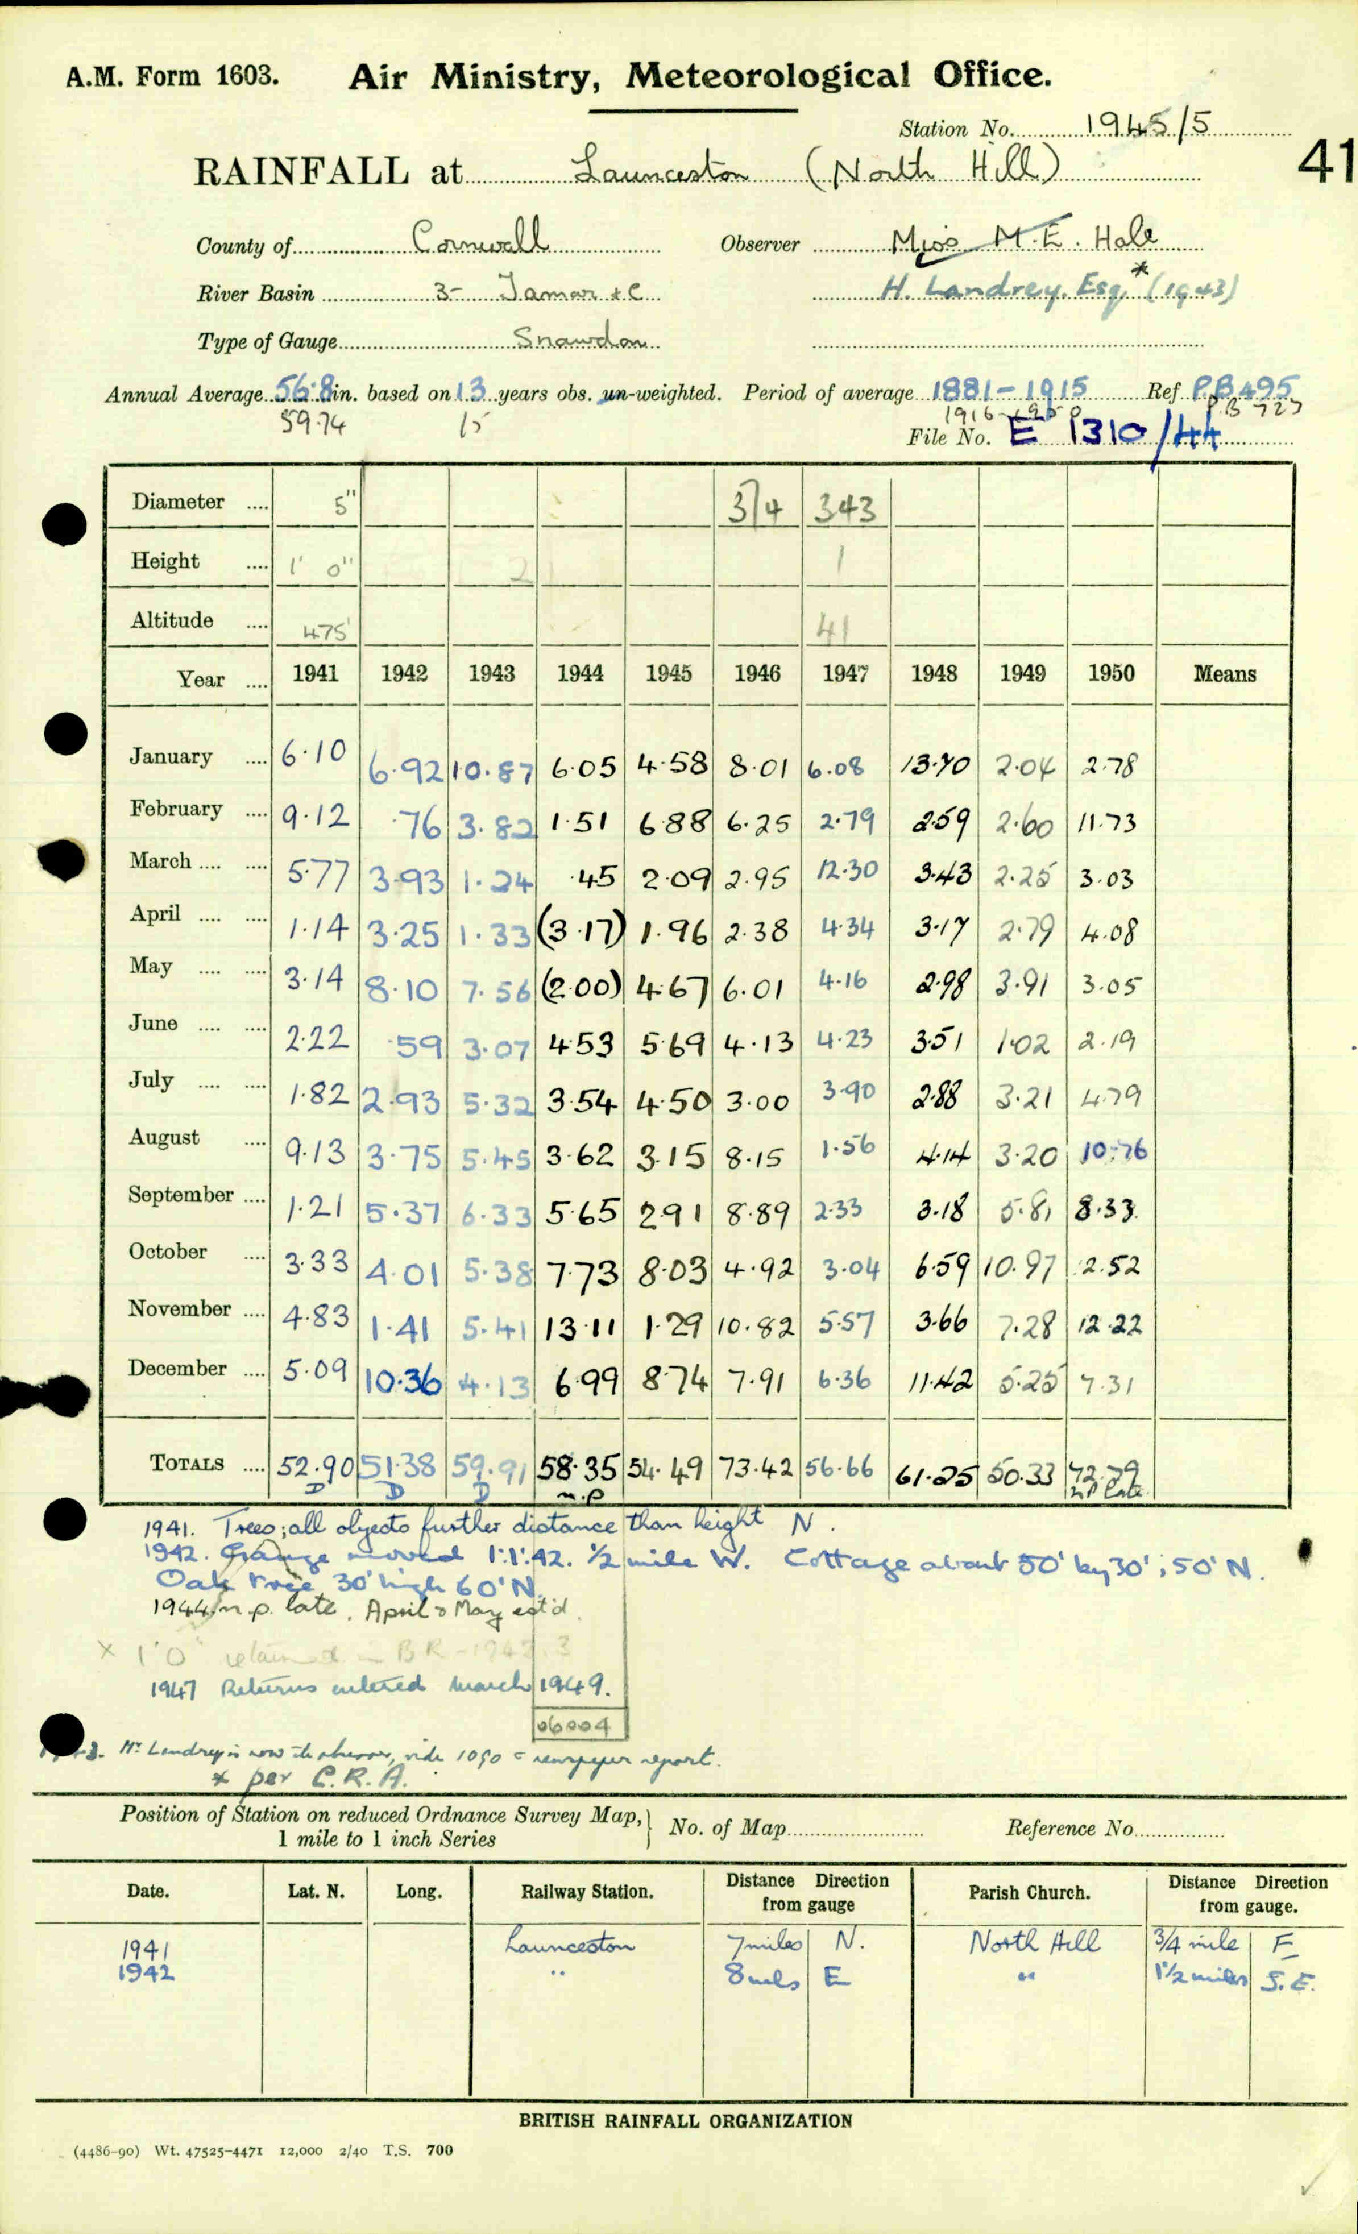 A.M. Form 1603. Air Ministry, Meteorological Office.
Station No. 1945/5
41
RAINFALL at Launceston (North Hill)
County of Cornwall Observer Miss M.E. Hale
River Basin 3- Tamar &c H. Landrey. Esq.* (1943)
Type of Gauge Snowdon
Annual Average 56.8 in. based on 13 years obs. un-weighted. Period of average 1881-1915 Ref P.B 495
59.74 15 1916-1950 P.B 727
File No. E 1310/44
Diameter 5" 3/4 343
Height 1' 0" 2 1
Altitude 475' 41
Year 1941 1942 1943 1944 1945 1946 1947 1948 1949 1950 Means
January 6.10 6.92 10.87 6.05 4.58 8.01 6.08 13.70 2.04 2.78
February 9.12 .76 3.82 1.51 6.88 6.25 2.79 2.59 2.60 11.73
March 5.77 3.93 1.24 .45 2.09 2.95 12.30 3.43 2.25 3.03
April 1.14 3.25 1.33 (3.17) 1.96 2.38 4.34 3.17 2.79 4.08
May 3.14 8.10 7.56 (2.00) 4.67 6.01 4.16 2.98 3.91 3.05
June 2.22 .59 3.07 4.53 5.69 4.13 4.23 3.51 1.02 2.19
July 1.82 2.93 5.32 3.54 4.50 3.00 3.90 2.88 3.21 4.79
August 9.13 3.75 5.45 3.62 3.15 8.15 1.56 4.14 3.20 10.76
September 1.21 5.37 6.33 5.65 2.91 8.89 2.33 3.18 5.81 8.33
October 3.33 4.01 5.38 7.73 8.03 4.92 3.04 6.59 10.97 2.52
November 4.83 1.41 5.41 13.11 1.29 10.82 5.57 3.66 7.28 12.22
December 5.09 10.36 4.13 6.99 8.74 7.91 6.36 11.42 5.25 7.31
TOTALS 52.90 51.38 59.91 58.35 54.49 73.42 56.66 61.25 50.33 72.79
D D D n.p n P late
1941. Trees; all objects further distance than height N.
1942. Gauge moved 1.1.42. 1/2 mile W. Cottage about 50' by 30'; 50' N.
Oak tree 30' high 60' N.
1944. n.p. late. April & May est'd.
x 1'0" retained in BR - 1942, 3
1947 Returns entered March 1949.
06004
Mr Landrey is now the observer, vide 1050 = newspaper report.
* per C.R.A.
Position of Station on reduced Ordnance Survey Map, 1 mile to 1 inch Series No. of Map Reference No.
Date. Lat. N. Long. Railway Station. Distance Direction from gauge Parish Church. Distance Direction from gauge.
1941 Launceston 7 miles N. North Hill 3/4 mile E
1942 " 8 mls E " 1 1/2 miles S.E.
BRITISH RAINFALL ORGANIZATION
(4486-90) Wt. 47525-4471 12,000 2/40 T.S. 700